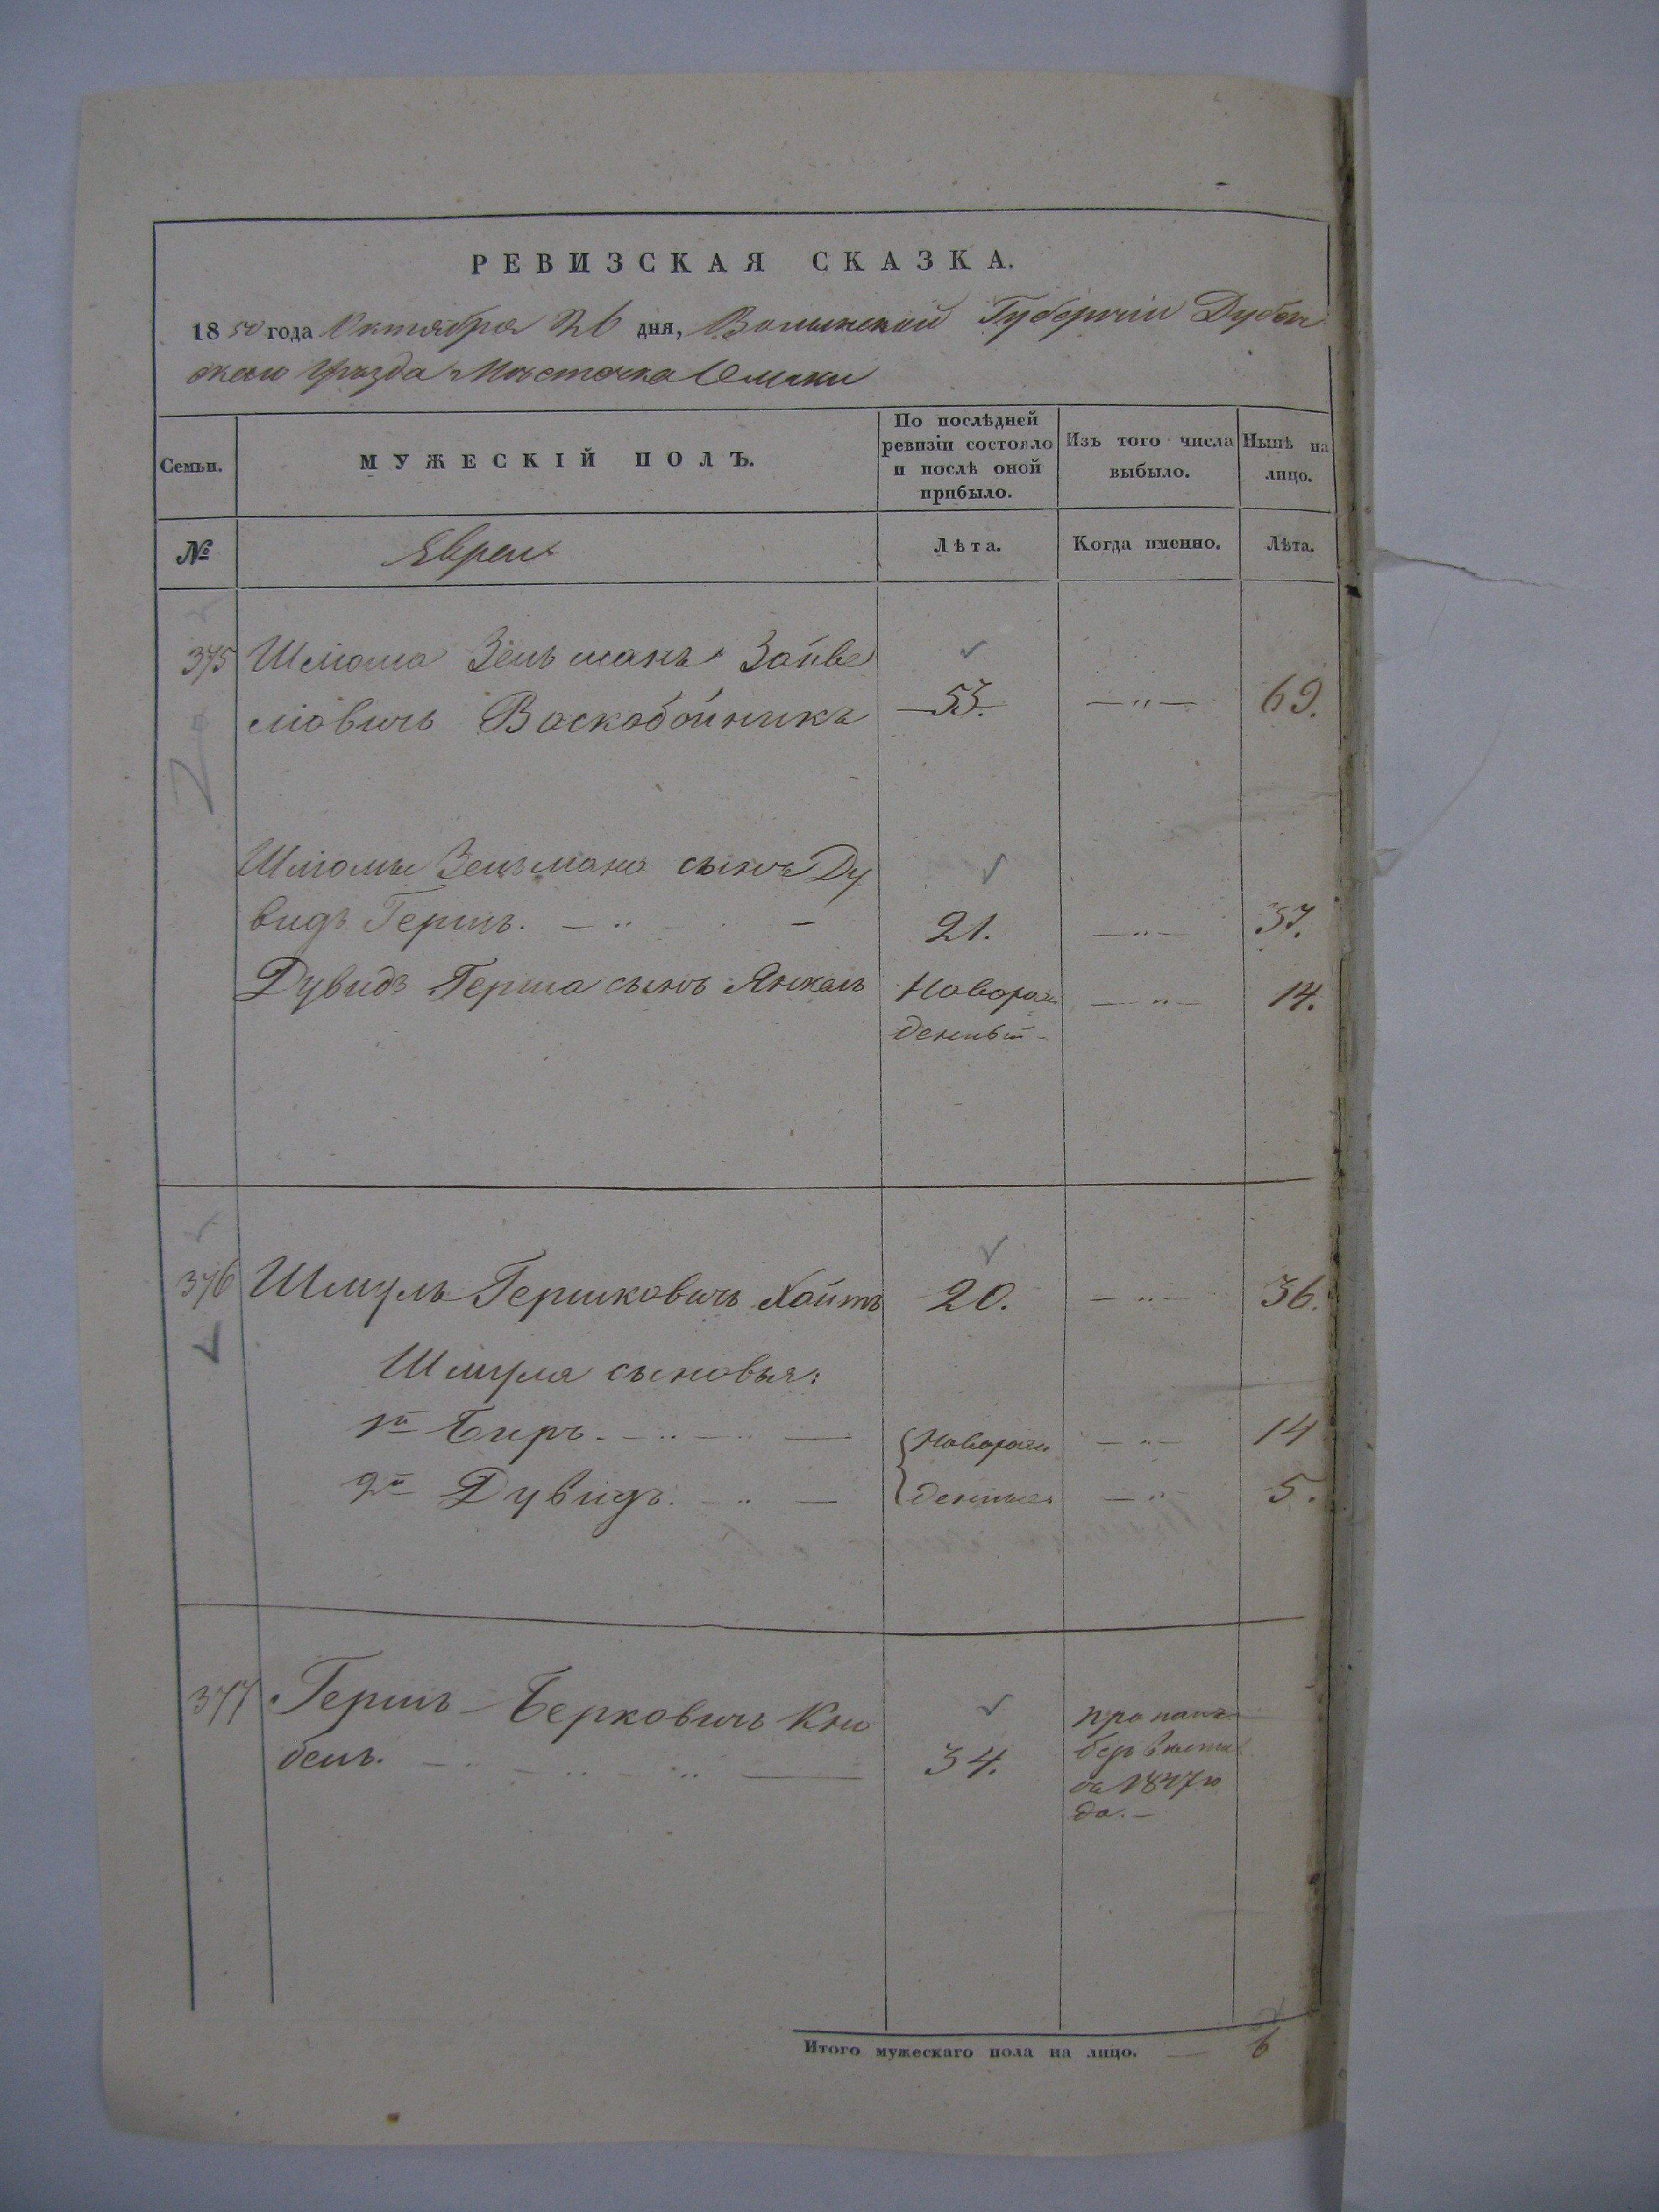 РЕВИЗСКАЯ СКАЗКА.
1850 года Октября 26 дня, Волынской Губерніи Дубен
скаго Уѣзда Мѣстечка Олыки
Семьи.
МУЖЕСКІЙ ПОЛЪ.
По послѣдней
ревизіи состояло
и послѣ оной
прибыло.
Изъ того числа
выбыло.
Нынѣ на
лицо.
№
Евреи
Лѣта.
Когда именно.
Лѣта.
375 Шліома Зельманъ Зайве
ліовичъ Воскобойникъ 53. — " — 69.
Шліомы Зельмана сынъ Ду
видъ Гершъ. — " — 21. — " — 37.
Дувидъ Герша сынъ Янкель Новорож — " — 14.
денный —
376 Шмуль Гершковичъ Хайтъ 20. — " — 36.
Шмуля сыновья:
1й Беръ. — " — " — Новорож — " — 14
2й Дувидъ. — " — денные — " — 5.
377 Гершъ Берковичъ Кни
бель. — " — " — 34.
пропалъ
безъ вѣсти
съ 1847 го
да. —
Итого мужескаго пола на лицо. — 6